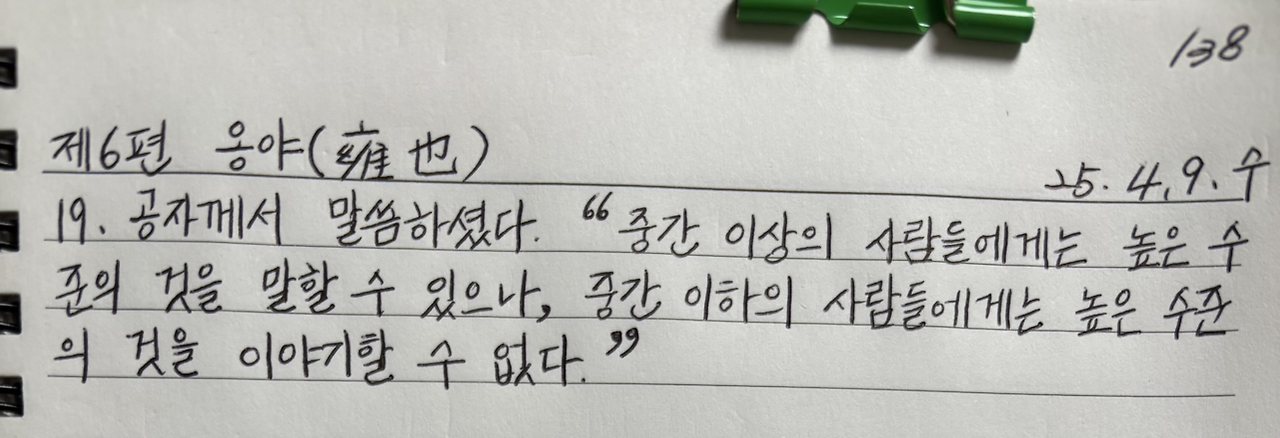 138
제6편 옹야(雍也)
25. 4. 9. 수
19. 공자께서 말씀하셨다. “중간 이상의 사람들에게는 높은 수
준의 것을 말할 수 있으나, 중간 이하의 사람들에게는 높은 수준
의 것을 이야기할 수 없다.”